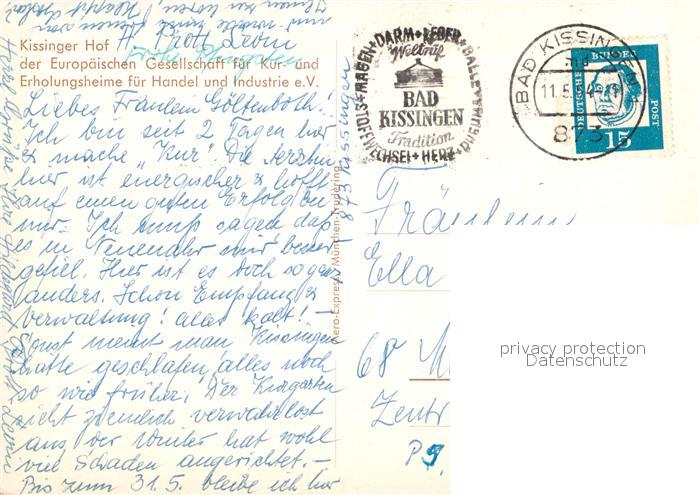 Kissinger Hof
der Europäischen Gesellschaft für Kur- und
Erholungsheime für Handel und Industrie e.V.
Liebes Fräulein Göltenboth!
Ich bin seit 2 Tagen hier
& mache „Kur“. Die Ärztin
hier ist energischer & hofft
auf einen guten Erfolg bei
mir. Ich muss sagen dass
es in Neuenahr mir besser
gefiel. Hier ist es doch so ganz
anders. Schon Empfang &
Verwaltung! alles kalt! –
Sonst meint man Kissingen
hätte geschlafen, alles noch
so wie früher. Der Kurgarten
sieht ziemlich verwahrlost
aus, der Winter hat wohl
viel Schaden angerichtet. –
Bis zum 31.5. bleibe ich hier
873 Kissingen
Aero-Express München-Trudering
MAGEN + DARM + LEBER + GALLE + RHEUMA
HERZ
Weltruf
BAD
KISSINGEN
Tradition
BAD KISSINGEN
11.5.
873
DEUTSCHE BUNDESPOST
15
Fräulein
Ella
68
Zentr
privacy protection
Datenschutz